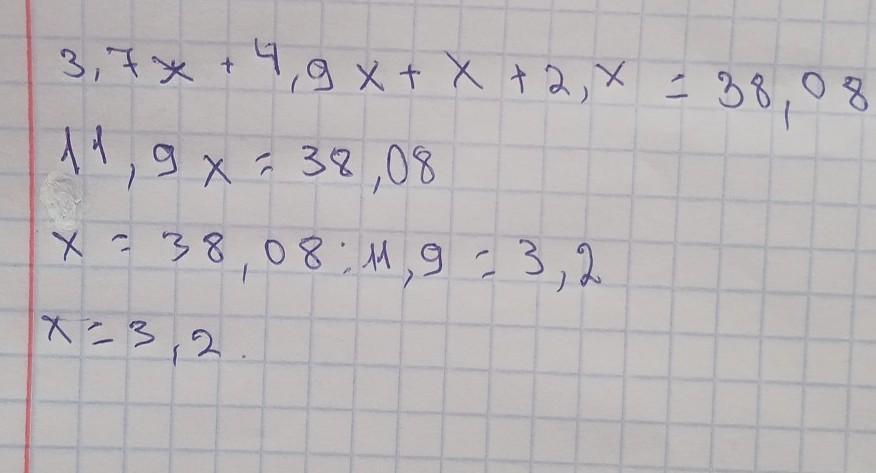 3,7x + 4,9x + x + 2,x = 38,08
11,9x = 38,08
x = 38,08 : 11,9 = 3,2
x = 3,2.